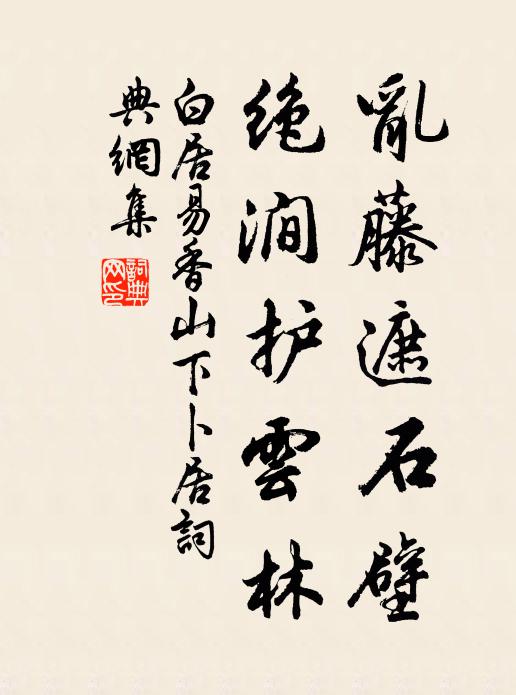 亂藤遮石壁
绝澗护雲林
白居易香山下卜居詞
典網集
詞典网印